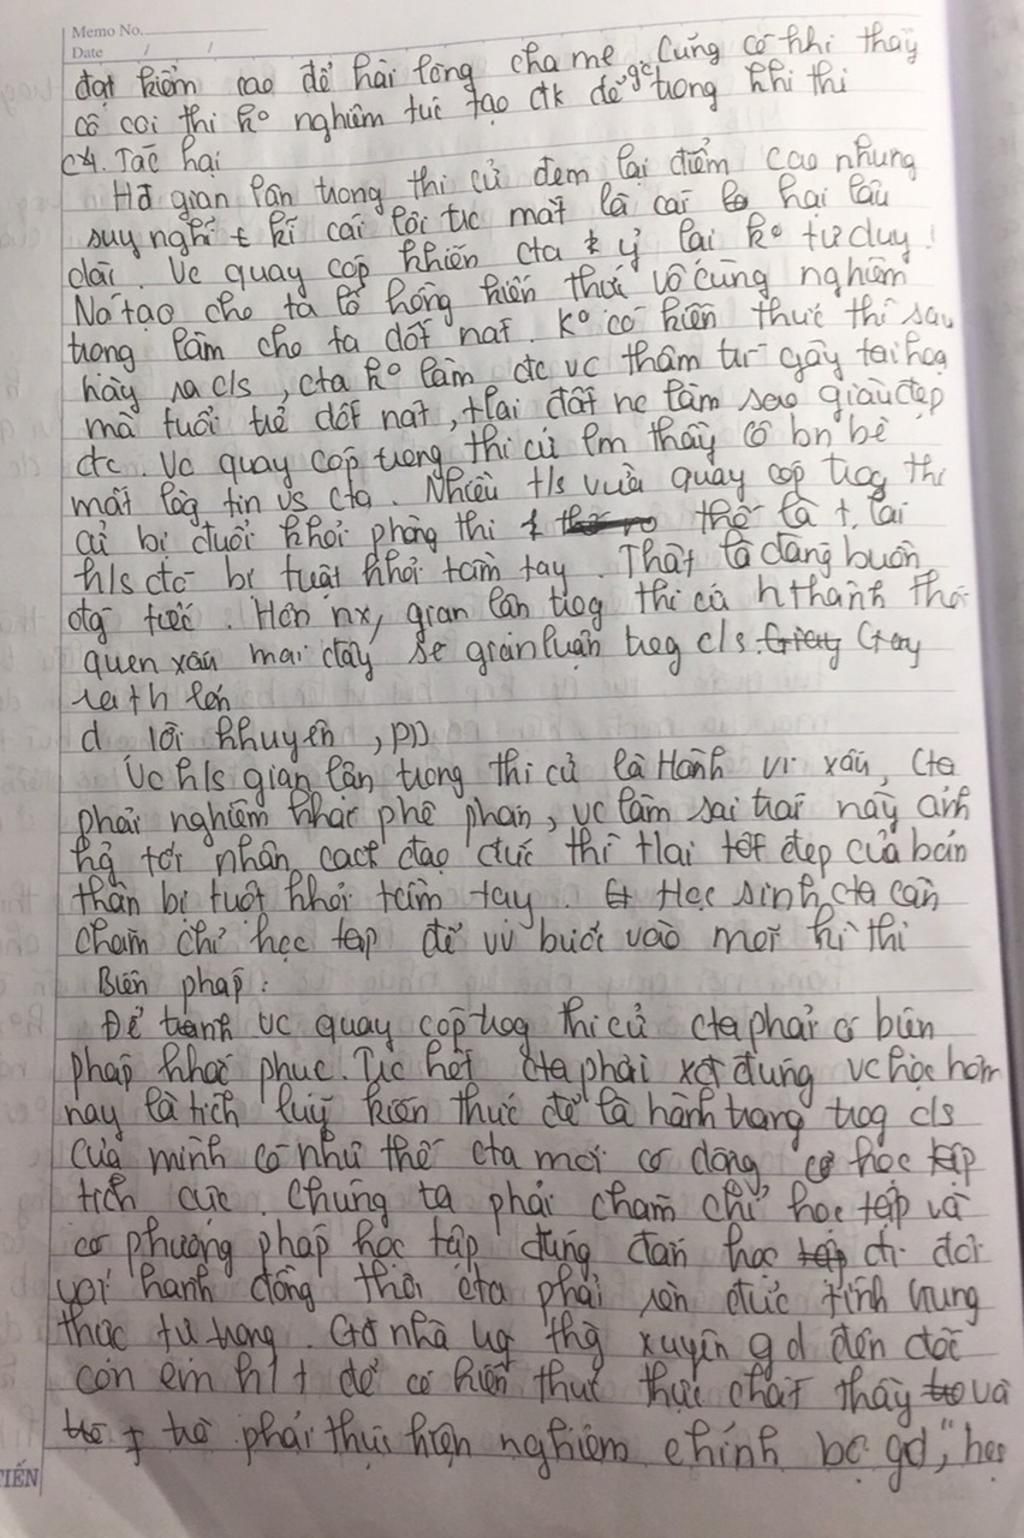 Memo No.
Date / /
đạt điểm cao để hài lòng cha mẹ. Cũng có khi thầy
cô coi thi ko nghiêm túc tạo đk để trong khi thi
c4. Tác hại
Hđ gian lận trong thi cử đem lại điểm cao nhưng
suy nghĩ kĩ cái lợi trc mắt là cái hại lâu
dài. Vc quay cóp khiến cta ỷ lại ko tư duy.
Nó tạo cho ta lỗ hổng kiến thức vô cùng nghiêm
trọng làm cho ta dốt nát. Ko có kiến thức thì sau
này ra c/s, cta ko làm đc vc thậm trí gây tai hoạ
mà tuổi trẻ dốt nát, tlai đất nc làm sao giàu đẹp
đc. Vc quay cóp trong thi cử lm thầy cô bn bè
mất lòg tin vs cta. Nhiều t/s vừa quay cóp trog thi
cử bị đuổi khỏi phòng thi thế là t.lai
h/s đó bị tuột khỏi tầm tay. Thật là đáng buồn
đg tiếc. Hơn nx, gian lận trog thi cử hthành thói
quen xấu mai đây sẽ gián luận trog c/s. Gay
d lời khuyên, PD
Vc h/s gian lận trong thi cử là Hành vi xấu, Cta
phải nghiêm khắc phê phán, vc làm sai trái này ảnh
hg tới nhân cách đạo đức thì tlai tốt đẹp của bản
thân bị tuột khỏi tầm tay. Học sinh, cta cần
chăm chỉ học tập để vữ bước vào mỗi kì thi
Biện pháp:
Để tránh vc quay cóp trog thi cử cta phải có biện
pháp khắc phục. Trc hết cta phải xđ đúng vc học hôm
nay là tích luỹ kiến thức để là hành trang trog c/s
của mình có như thế cta mới có động cơ học tập
tích cực. Chúng ta phải chăm chỉ học tập và
có phương pháp học tập đúng đắn học đi đôi
với hành đồng thời cta phải rèn đức tính trung
thực tự trọng. Gđ nhà trg thg xuyên gd đôn đốc
con em h/t để có kiến thức thực chất thầy và
trò phải thực hiện nghiêm chỉnh bộ gd, "học
TIẾN